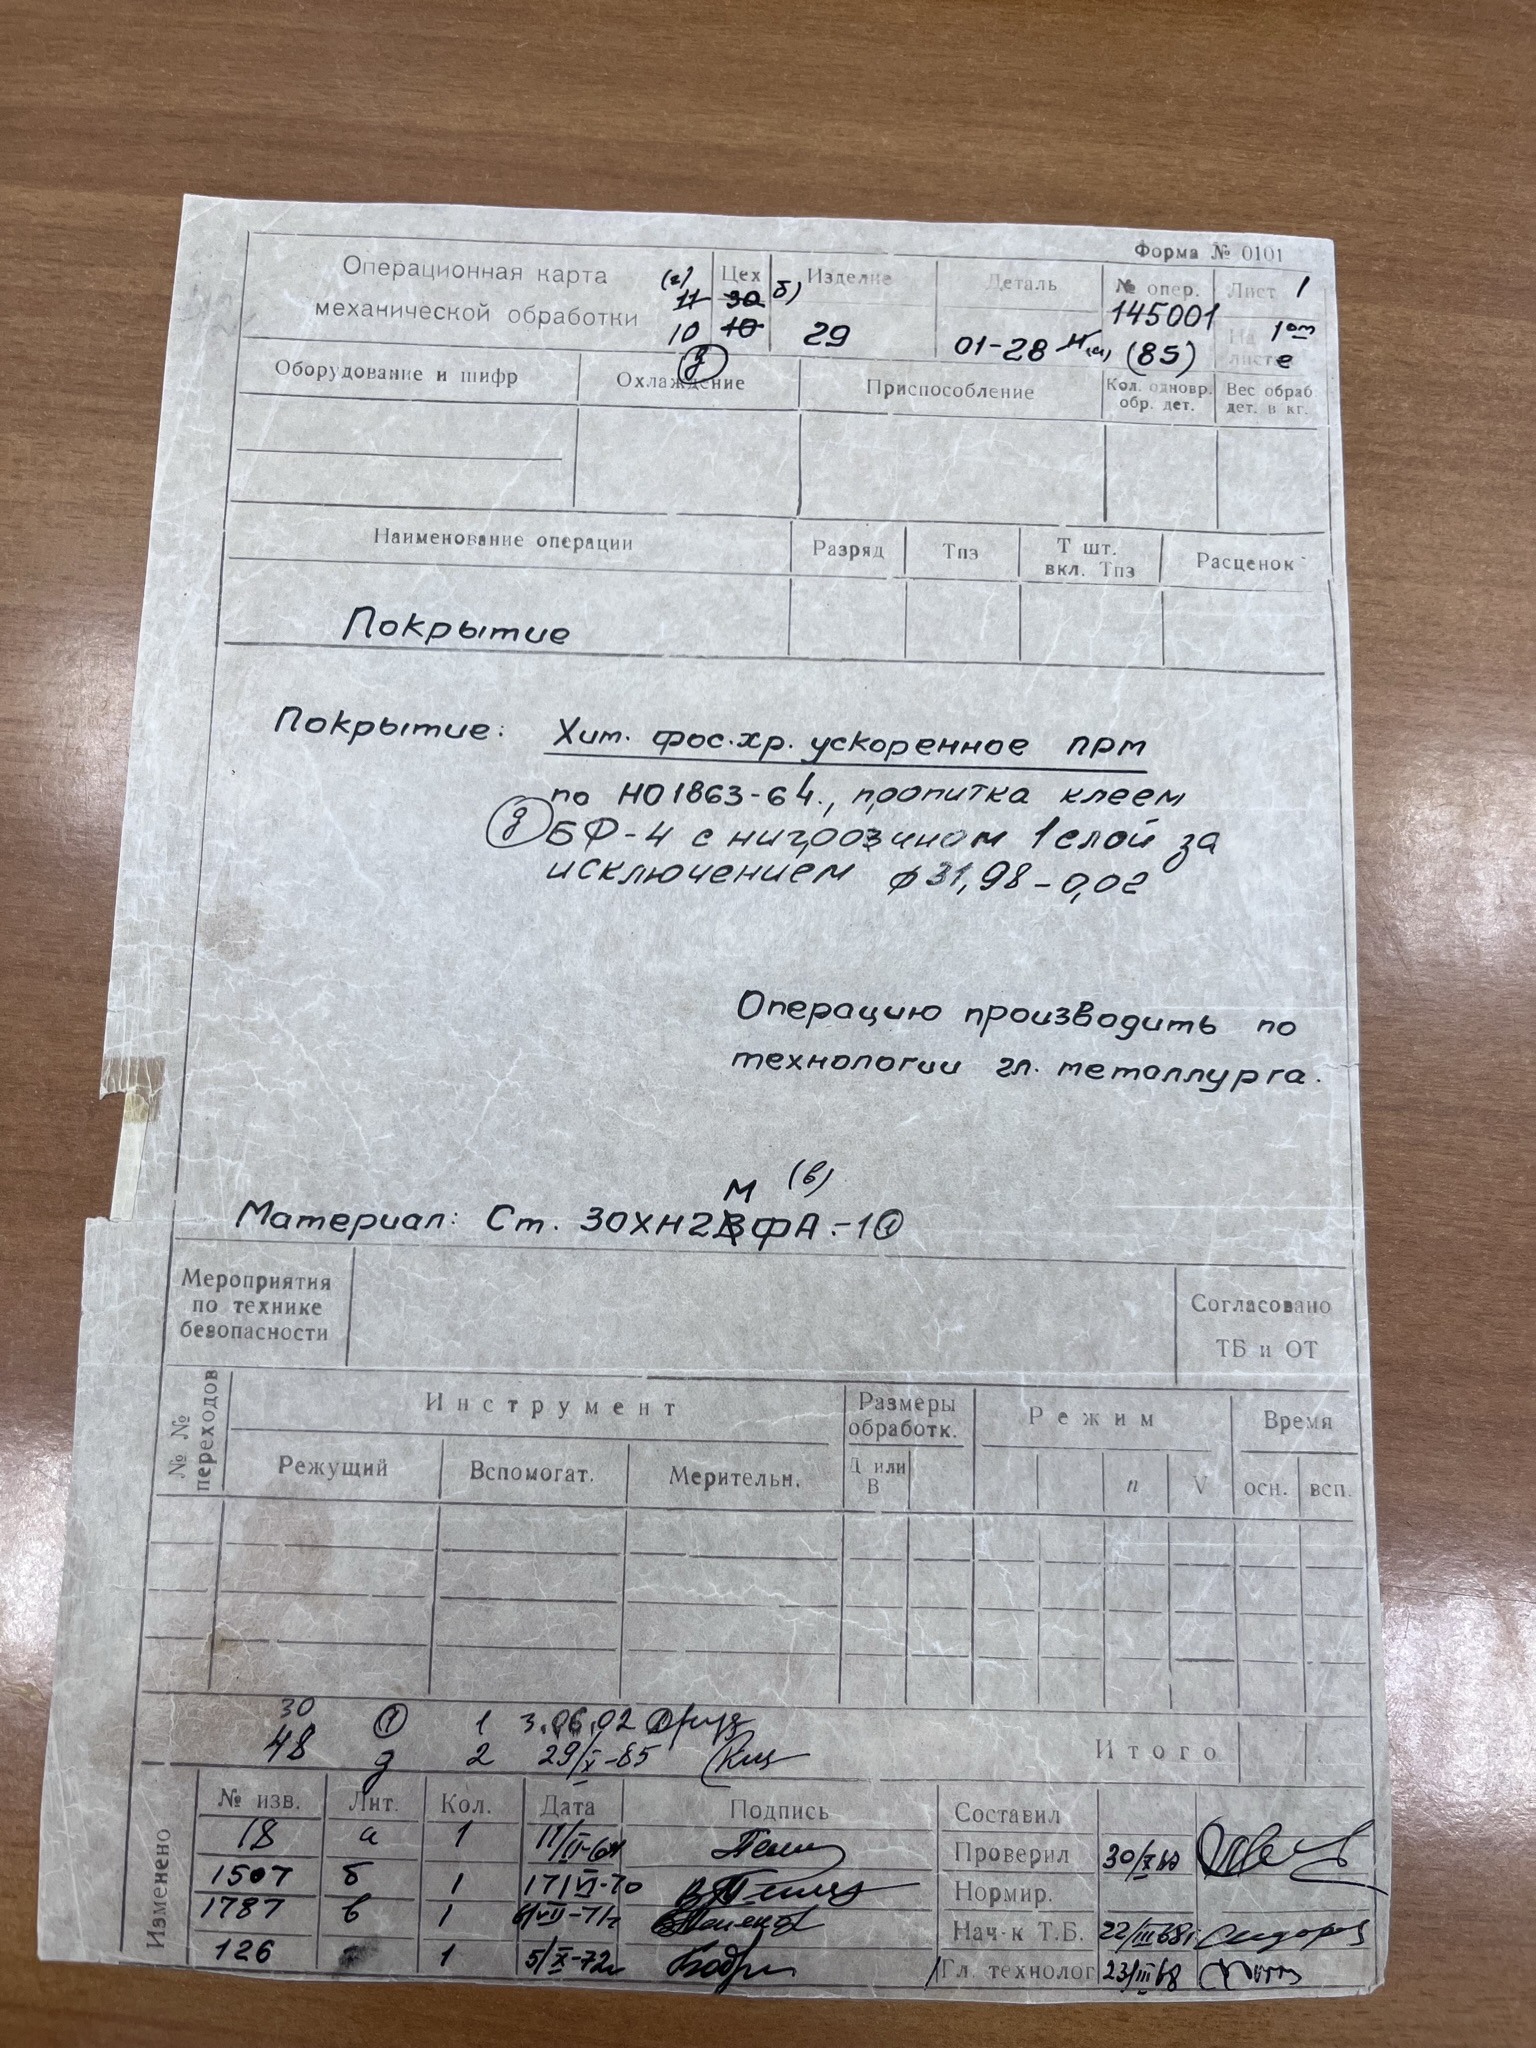 Форма № 0101
Операционная карта
механической обработки
(г)
11
10
Цех
30 б)
10
Изделие
29
Деталь
01-28
№ опер.
145001
(85)
Лист 1
На 1ом
листе
Оборудование и шифр
Охлаждение
Приспособление
Кол. одновр.
обр. дет.
Вес обраб
дет. в кг.
Наименование операции
Разряд
Тпз
Т шт.
вкл. Тпз
Расценок
Покрытие
Покрытие: Хим. фос.хр. ускоренное прм
по НО1863-64., пропитка клеем
д БФ-4 с нигрозином 1 слой за
исключением ⌀31,98-0,02
Операцию производить по
технологии гл. металлурга.
М (в)
Материал: Ст. 30ХН2ВФА.-1
Мероприятия
по технике
безопасности
Согласовано
ТБ и ОТ
№ №
переходов
Инструмент
Размеры
обработк.
Режим
Время
Режущий
Вспомогат.
Мерительн.
Д или
В
n
V
осн.
всп.
30 1 3.06.02
48 д 2 29/X-85
Итого
Изменено
№ изв. Лит. Кол. Дата Подпись
18 а 1
1507 б 1 17/VI-70
1787 в 1
126 1 5/X-72г
Составил
Проверил
Нормир.
Нач-к Т.Б. 22/III 68г
Гл. технолог 23/III 68